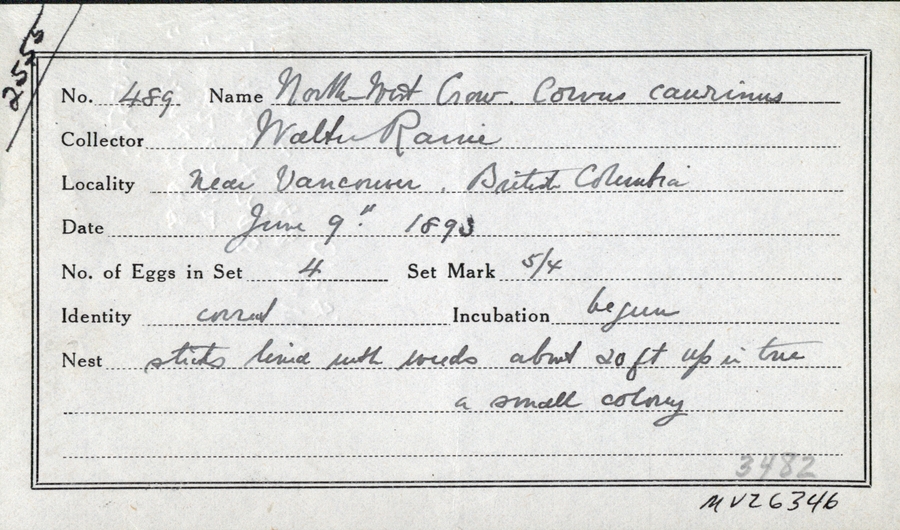 2555
No. 489. Name North-West Crow. Corvus caurinus
Collector Walter Raine
Locality near Vancouver. British Columbia
Date June 9" 1893
No. of Eggs in Set 4 Set Mark 5/4
Identity correct Incubation begun
Nest sticks lined with weeds about 20 ft up in tree
a small colony
3482
MVZ6346